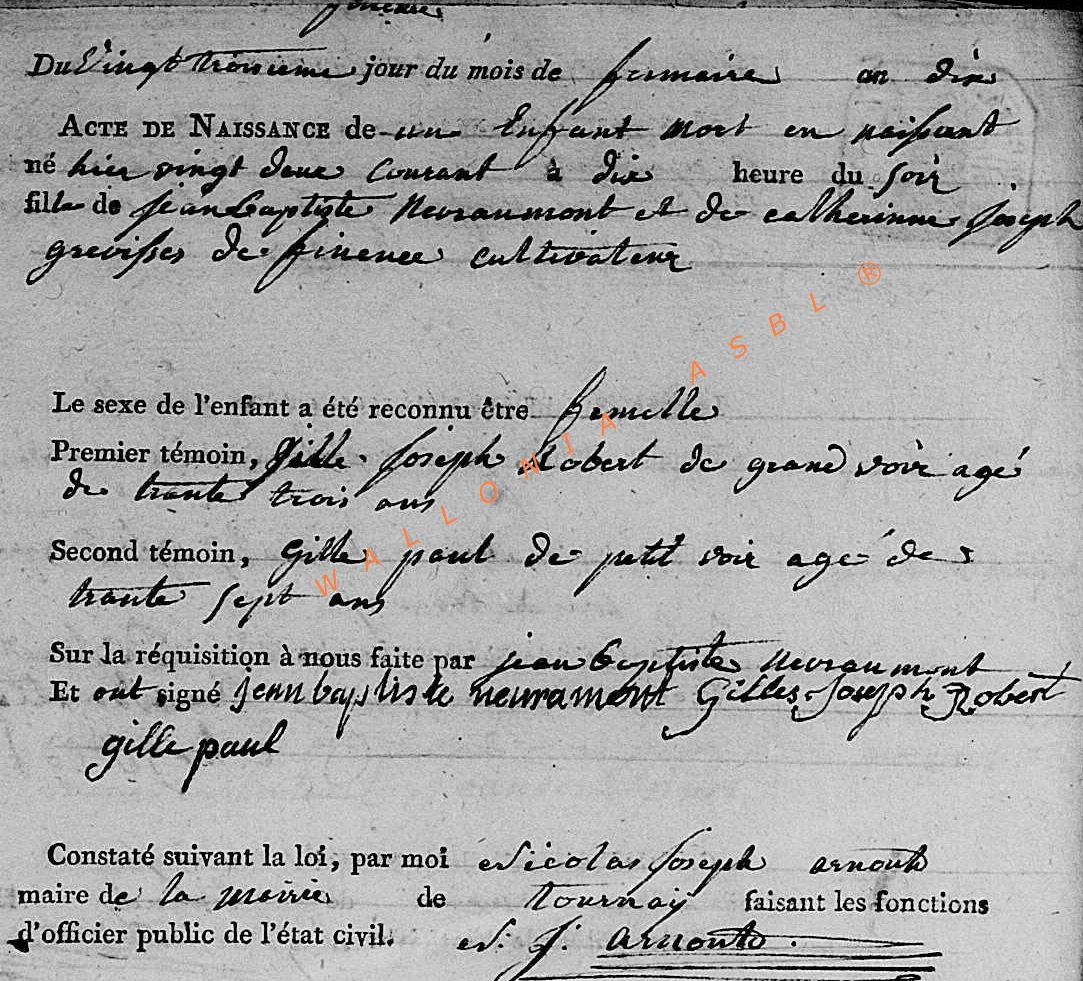 Du Vingt troisieme jour du mois de frimaire an dix
ACTE DE NAISSANCE de un Enfant mort en naissant
né hier vingt deux Courant à dix heure du soir
fille de jean baptiste Nevraumont et de catherinne joseph
grevisses de finenee cultivateur
Le sexe de l'enfant a été reconnu être femelle
Premier témoin, Gille Joseph Robert de grand voir agé
de trante trois ans
Second témoin, Gille paul de petit voir agé de
trante sept ans
Sur la réquisition à nous faite par jean baptiste Nevraumont
Et ont signé jean baptiste neuramont Gilles Joseph Robert
gille paul
Constaté suivant la loi, par moi Nicolas joseph arnould
maire de la mairie de tournay faisant les fonctions
d'officier public de l'état civil. N: j: arnould
WALLONIA ASBL ®